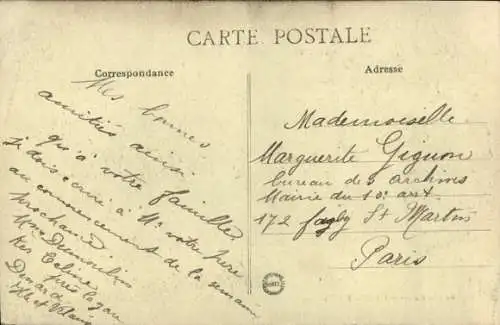 CARTE POSTALE
Correspondance
Adresse
Mes bonnes
amitiés ainsi
qu'à votre famille.
Je dois écrire à Mr votre père
au commencement de la semaine
prochaine
Mme Desmoulins
Ker Céline
près la gare
Dinard
Ille et Vilaine
Mademoiselle
Marguerite Gignon
bureau des archives
Mairie du 10e arrt
172 faubg St Martin
Paris